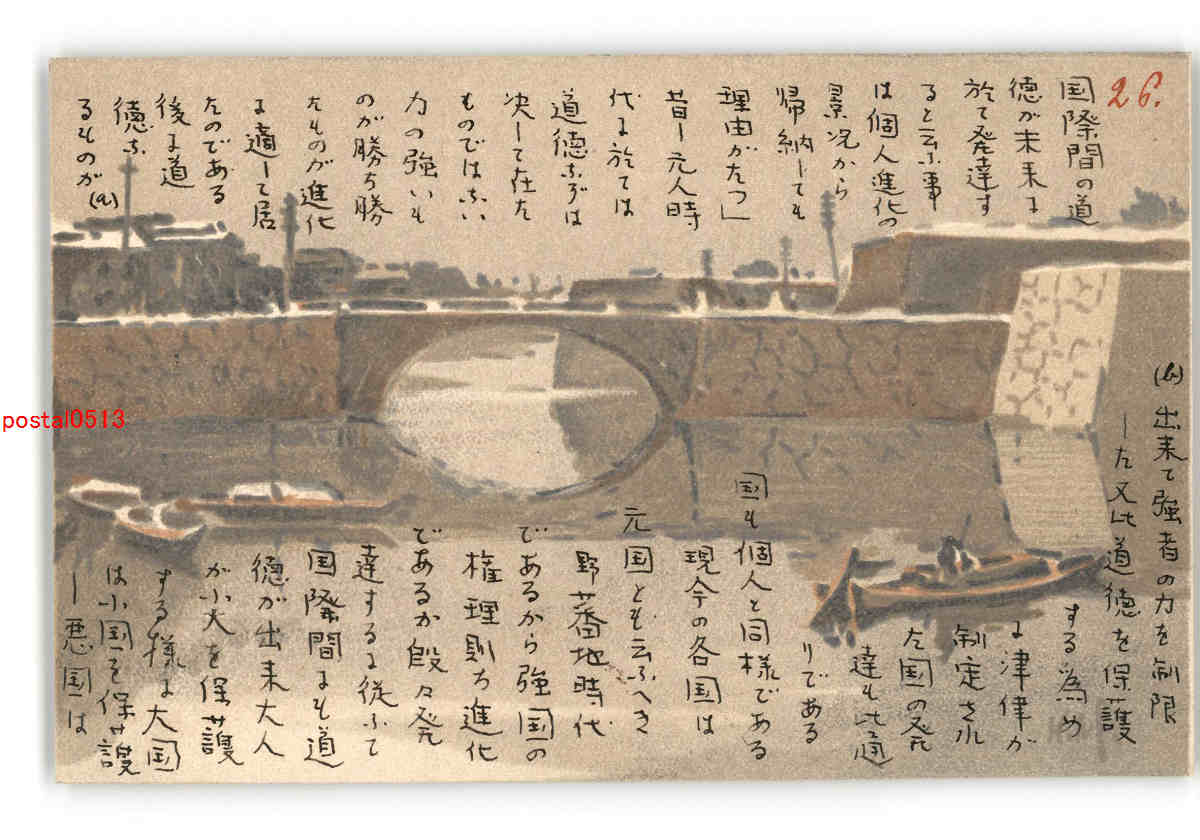 26.
国際間の道
徳が未来に
於て発達す
ると云ふ事
は個人進化の
景況から
帰納しても
理由がたつ」
昔し元人時
代に於ては
道徳なぞは
決して在た
ものではない
力の強いも
のが勝ち勝
たものが進化
に適して居
たのである
後に道
徳な
るものが
(a)
(b) 出来て強者の力を制限
した又此道徳を保護
する為め
に津律が
制定され
た国の発
達も此通
りである
国も個人と同様である
現今の各国は
元国とも云ふへき
野蕃地時代
であるから強国の
権理則ち進化
であるか段々発
達するに従ふて
国際間にも道
徳が出来大人
が小人を保護
する様に大国
は小国を保護
し悪国は
postal0513